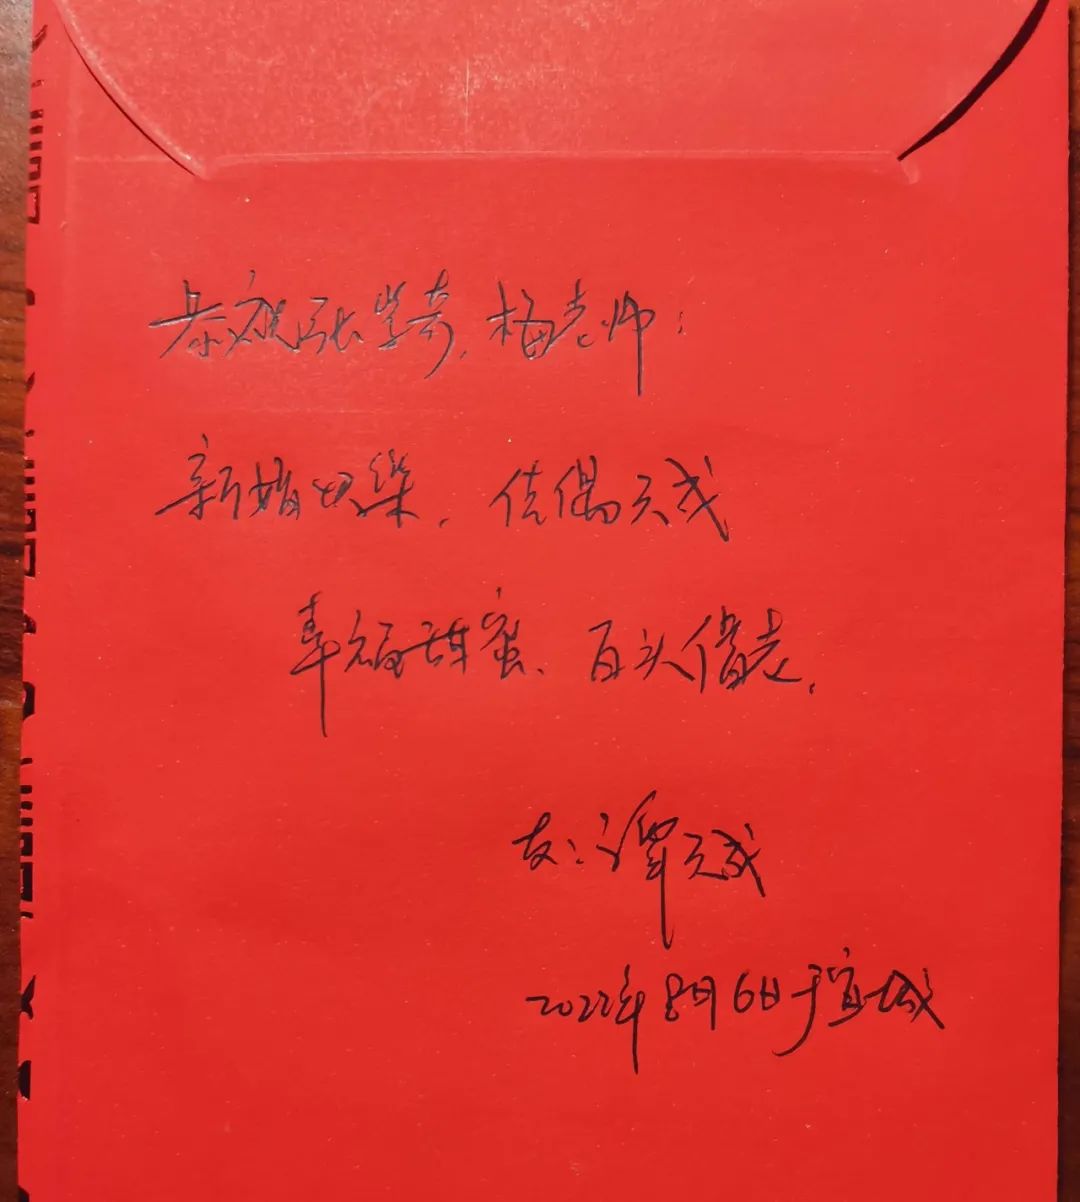 恭祝张学奇、梅老师：
新婚快樂、佳偶天成
幸福甜蜜、百头偕老，
友：谭天成
2022年8月6日于宜城